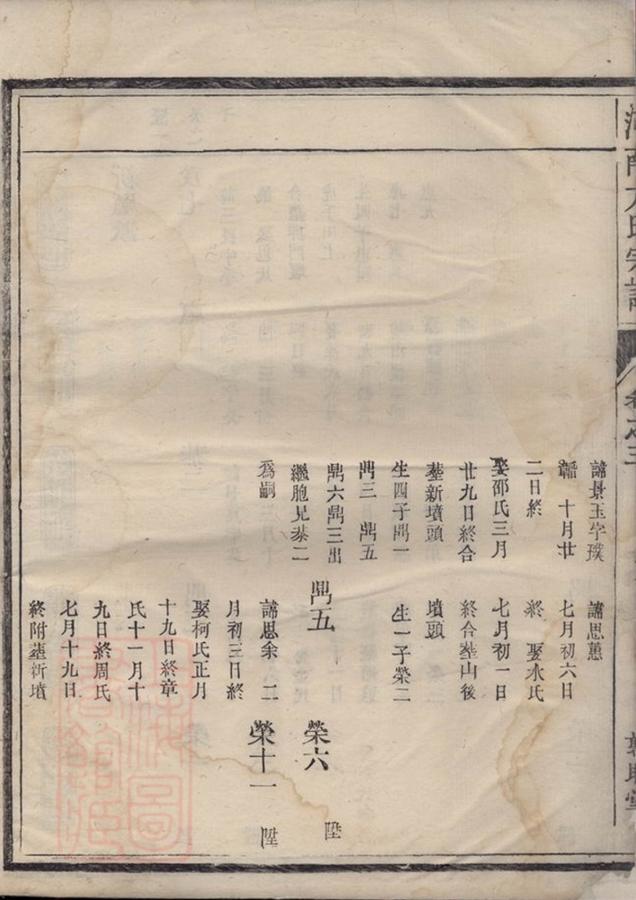 卷之三
諱景玉字璞
十月廿
二日終
娶邵氏三月
廿九日終合
塟新墳頭
生四子鼎一
鼎三 鼎五
鼎六鼎三出
繼胞兄棊二
為嗣
諱思蕙
七月初六日
終 娶水氏
七月初一日
終合塟山後
墳頭
生一子榮二
鼎五
諱思余 二
月初三日終
娶柯氏正月
十九日終章
氏十一月十
九日終周氏
七月十九日
終附塟新墳
榮六 陞
榮十一 陞